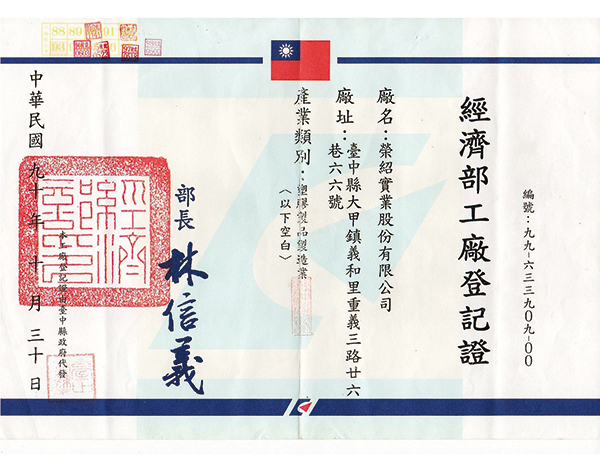 經濟部工廠登記證
編號：九九-六三三九0九-00
廠名：榮紹實業股份有限公司
廠址：臺中縣大甲鎮義和里重義三路廿六
巷六六號
產業類別：塑膠製品製造業
（以下空白）
部長 林信義
本工廠登記證由臺中縣政府代發
中華民國九十年十月三十日
88 89 91
93